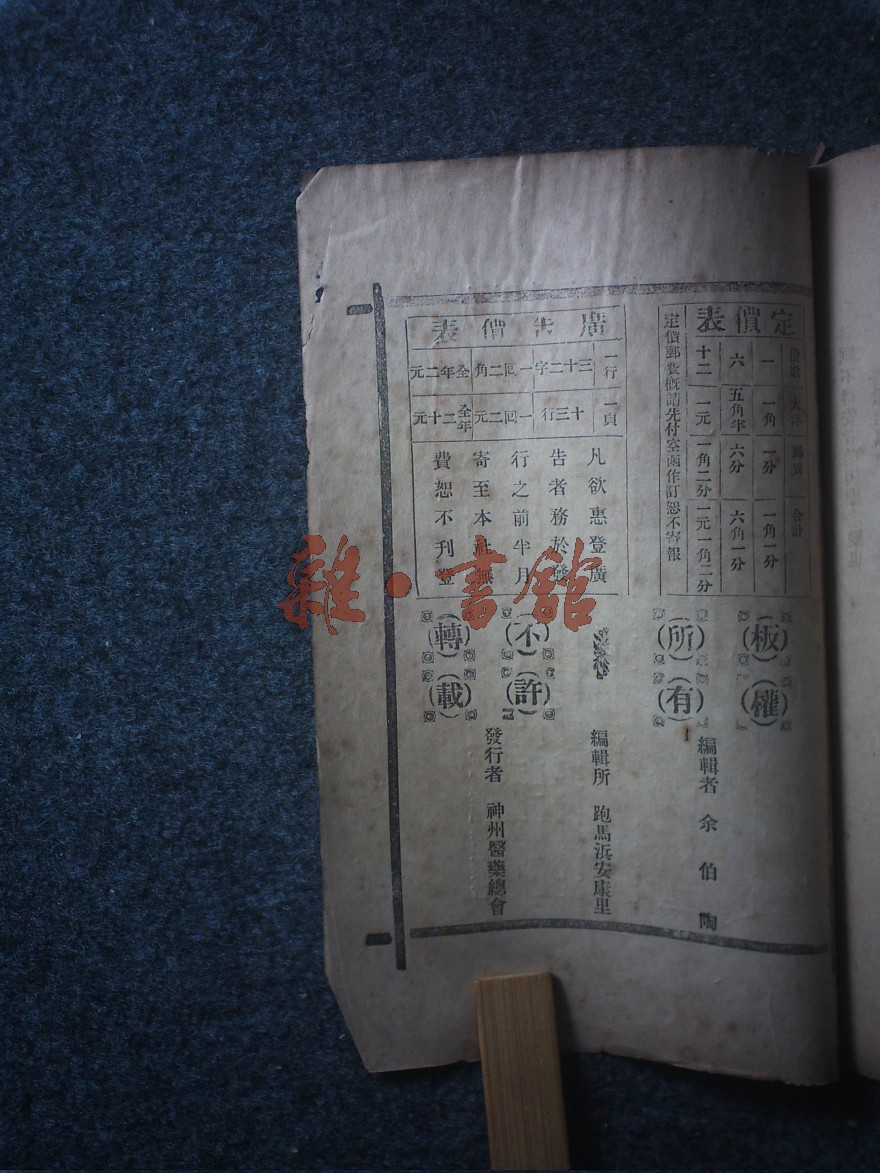 定價表
冊數 一 六 十二
大洋 一角 五角半 一元
郵費 一分 六分 一角二分
合計 一角一分 六角一分 一元一角二分
定價郵費概請先付空函作訂恕不寄報
廣告價表
一行 三十二字 一回二角 全年二元
一頁 十三行 一回二元 全年二十元
凡欲惠登廣
告者務於發
行之前半月
寄至本社無
費恕不刊登
板權
所有
不許
轉載
編輯者 余伯陶
編輯所 跑馬浜安康里
發行者 神州醫藥總會
雜·書館